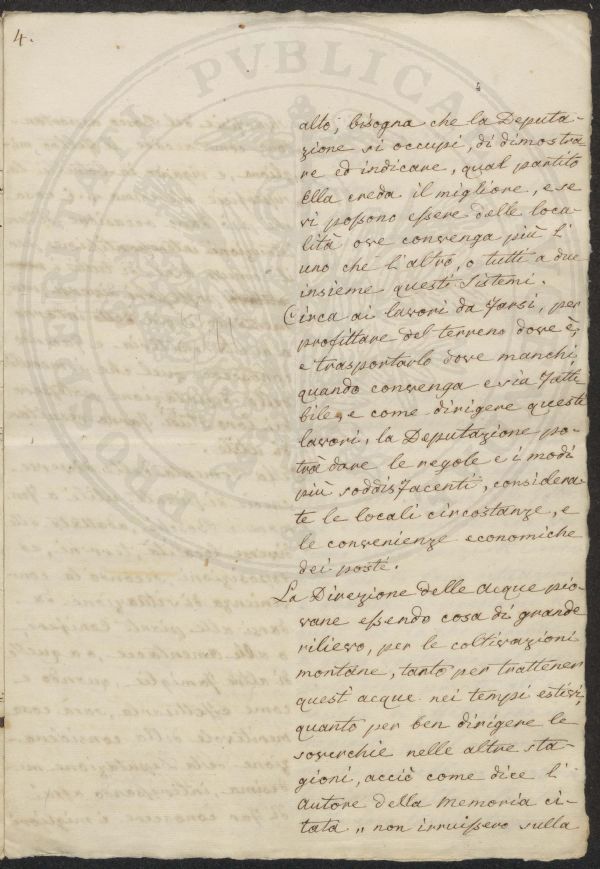 4.
alto, bisogna che la Deputa-
zione si occupi, di dimostra
re ed indicare, qual partito
Ella creda il migliore, e se
vi possono essere delle loca-
lità ove convenga più l'
uno che l'altro, o tutti a due
insieme questi sistemi.
Circa ai lavori da farsi, per
profittare del terreno dove è,
e trasportarlo dove manchi,
quando convenga e sia fatti
bile, e come dirigere questi
lavori, la Deputazione po-
trà dare le regole e i modi
più soddisfacenti, considera-
te le locali circostanze, e
le convenienze economiche
dei posti.
La Direzione delle acque pio-
vane essendo cosa di grande
rilievo, per le coltivazioni
montane, tanto per trattener
quest'acque nei tempi estivi,
quanto per ben dirigere le
soverchie nelle altre sta-
gioni, acciò come dice l'
autore della memoria ci-
tata „ non irruissero sulla
PROSPERITATI PUBLICAE